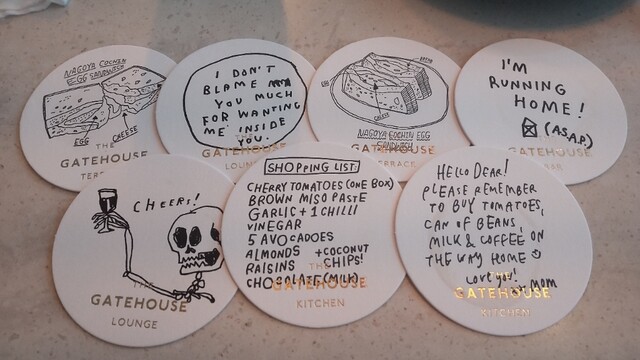 NAGOYA COCHIN
EGG SANDWISH
EGG
CHEESE
THE
GATEHOUSE
I DON'T
BLAME
YOU MUCH
FOR WANTING
ME INSIDE
YOU.
GATEHOUSE
LOUNGE
BREAD
EGG
CHEESE
NAGOYA COCHIN EGG
SANDWISH
GATEHOUSE
TERRACE
I'M
RUNNING
HOME!
(A.S.A.P.)
THE
GATEHOUSE
BAR
CHEERS!
THE
GATEHOUSE
LOUNGE
SHOPPING LIST:
CHERRY TOMATOES (ONE BOX)
BROWN MISO PASTE
GARLIC + 1 CHILLI
VINEGAR
5 AVOCADOES
ALMONDS + COCONUT
RAISINS CHIPS!
CHOCOLATE (MILK)
THE
GATEHOUSE
KITCHEN
HELLO DEAR!
PLEASE REMEMBER
TO BUY TOMATOES,
CAN OF BEANS,
MILK & COFFEE ON
THE WAY HOME
LOVE YOU!
MOM
THE
GATEHOUSE
KITCHEN